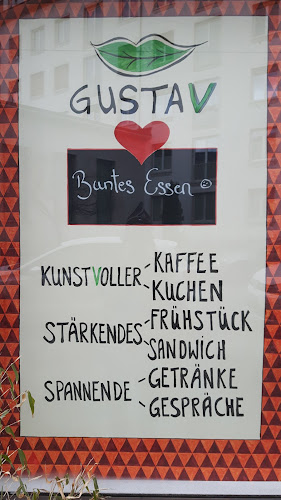 GUSTAV
Buntes Essen ©
KUNSTVOLLER KAFFEE
KUCHEN
STÄRKENDES FRÜHSTÜCK
SANDWICH
SPANNENDE GETRÄNKE
GESPRÄCHE